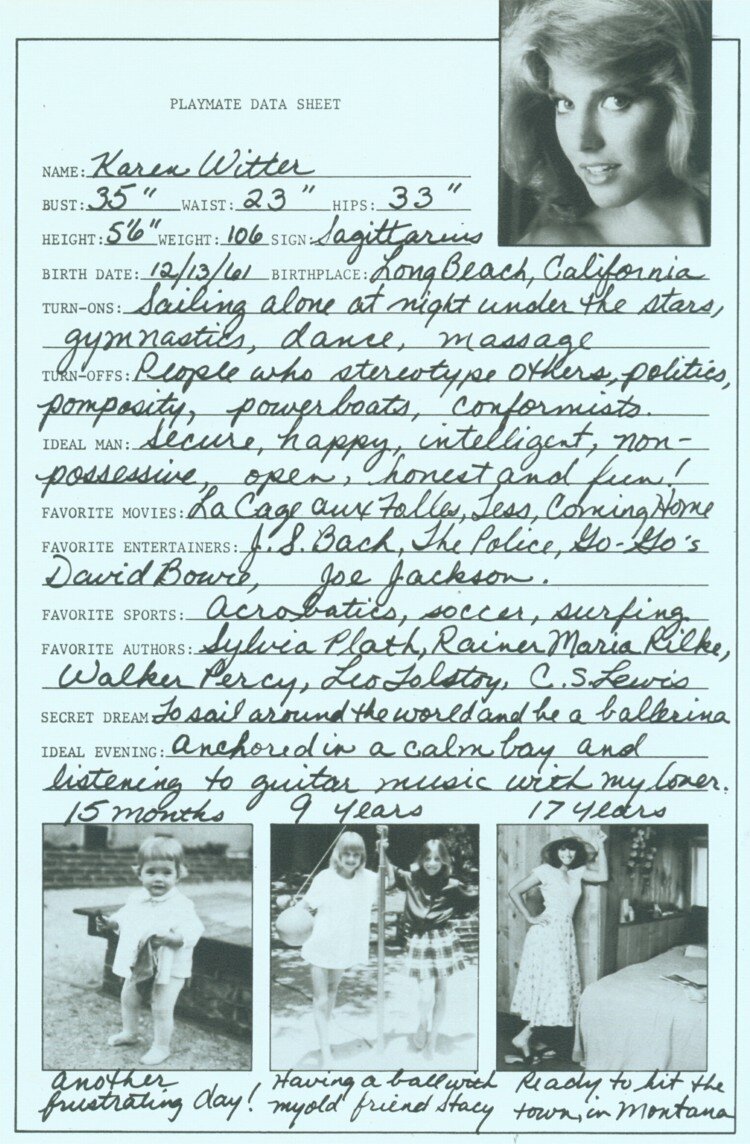 PLAYMATE DATA SHEET
NAME: Karen Witter
BUST: 35" WAIST: 23" HIPS: 33"
HEIGHT: 5'6" WEIGHT: 106 SIGN: Sagittarius
BIRTH DATE: 12/13/61 BIRTHPLACE: Long Beach, California
TURN-ONS: Sailing alone at night under the stars,
gymnastics, dance, massage
TURN-OFFS: People who stereotype others, politics,
pomposity, powerboats, conformists.
IDEAL MAN: Secure, happy, intelligent, non-
possessive, open, honest and fun!
FAVORITE MOVIES: La Cage aux Folles, Tess, Coming Home
FAVORITE ENTERTAINERS: J. S. Bach, The Police, Go-Go's
David Bowie, Joe Jackson.
FAVORITE SPORTS: Acrobatics, soccer, surfing
FAVORITE AUTHORS: Sylvia Plath, Rainer Maria Rilke,
Walker Percy, Leo Tolstoy, C. S. Lewis
SECRET DREAM: To sail around the world and be a ballerina
IDEAL EVENING: Anchored in a calm bay and
listening to guitar music with my lover.
15 months 9 years 17 years
Another
frustrating day!
Having a ball with
my old friend Stacy
Ready to hit the
town, in Montana